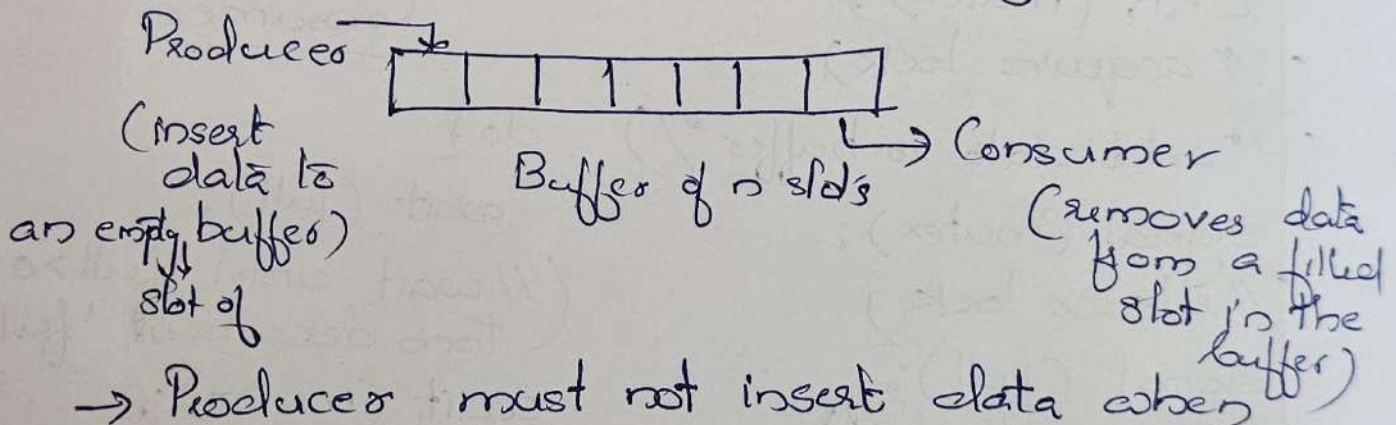 Producer
(insert
data to
an empty buffer)
slot of
Buffer of n slots
Consumer
(removes data
from a filled
slot in the
buffer)
→ Producer must not insert data when